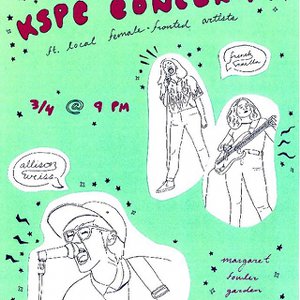 KSPC CONCERT
ft. local female-fronted artists
3/4 @ 9 PM
french vanilla
allison weiss
margaret
fowler
garden